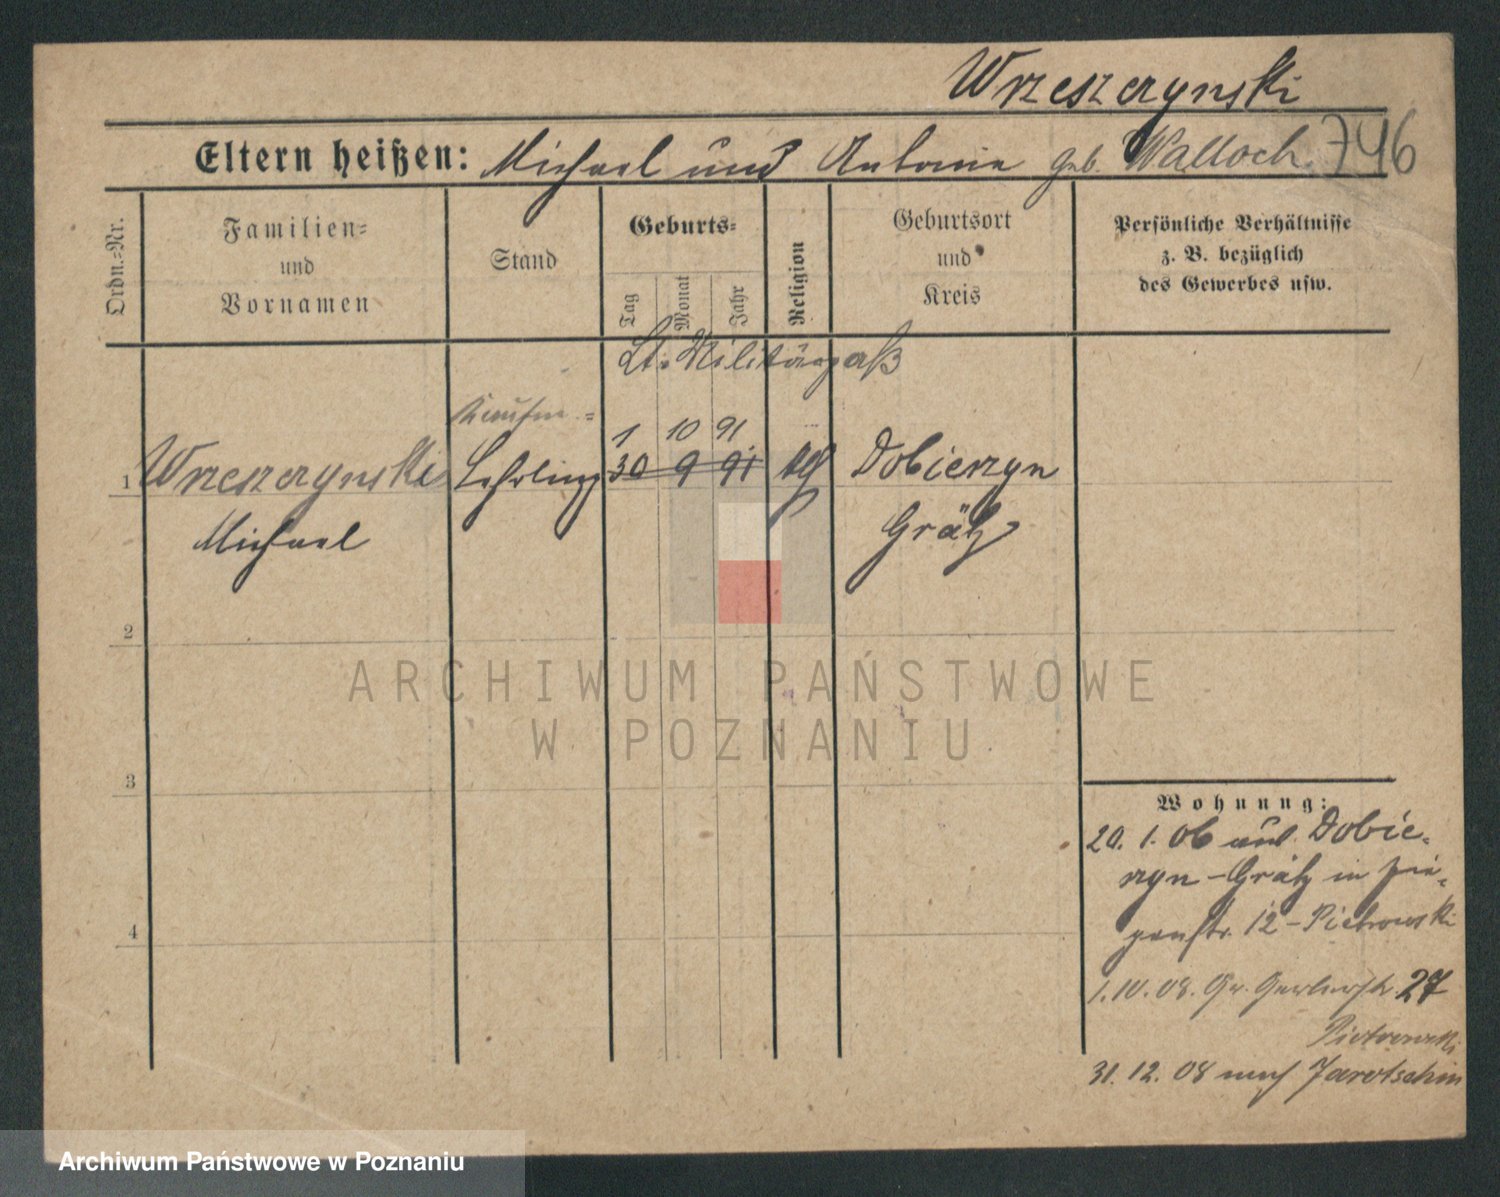 Wrzeszczynski
Eltern heißen: Michael und Antonie geb. Walloch 746
Ordn.-Nr.
Familien-
und
Vornamen
Stand
Geburts-
Tag
Monat
Jahr
Religion
Geburtsort
und
Kreis
Persönliche Verhältnisse
z. B. bezüglich
des Gewerbes usw.
Lt. Militärpaß
Kaufm.-
1 10 91
1 Wrzeszczynski Lehrling 30 9 91 Dobierzyn
Michael Grätz
2
3
4
Wohnung:
20. 1. 06 aus Dobie-
rzyn-Grätz in
12 - Piotrowski
1.10.08. Gr. Gerberstr. 27
Piotrowski
31. 12. 08 nach Jarotschin
ARCHIWUM PAŃSTWOWE
W POZNANIU
Archiwum Państwowe w Poznaniu